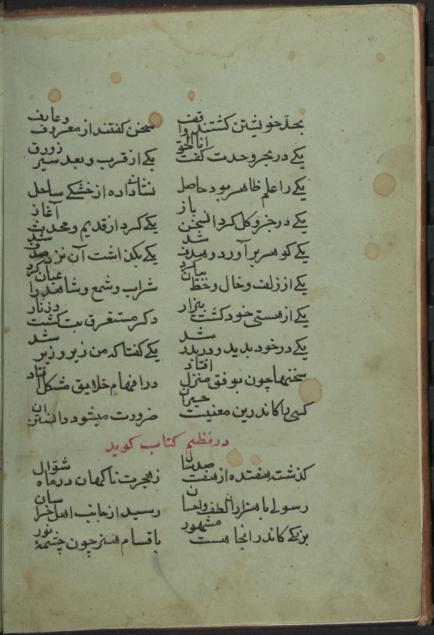 بحد خویشتن کشتند واقف سخن کفتند از معروف وعارف
یکی در بحر وحدت کفت اناالحق یکی از قرب و بعد سیر زورق
یکی را علم ظاهر بود حاصل نشانی داده از خشکی ساحل
یکی در جزو کل کرد این سخن باز یکی کرد از قدیم و محدث آغاز
یکی کو سر برآورد و هدف شد یکی بکذاشت آن شد
یکی از زلف و خال و خط بیان کرد شراب و شمع و شاهد را عیان کرد
یکی از هستی خود کشت بیزار دکر مستغرق بت کشت و زنار
یکی در خود بدید شد یکی کفتا که من زیر و زبر شد
سخنها چون بوفق منزل افتاد در افهام خلایق مشکل افتاد
کسی را کاندرین معنیست حیران ضرورت میشود دانستن آن
در نظم کتاب کوید
کذشته هفده از هفتصد سال ز هجرت ناکهان در ماه شوال
رسولی با هزاران لطف و احسان رسید از جانب اهل خراسان
بزرکی کاندر انجا هست مشهور باقسام هنر چون چشمهٔ نور